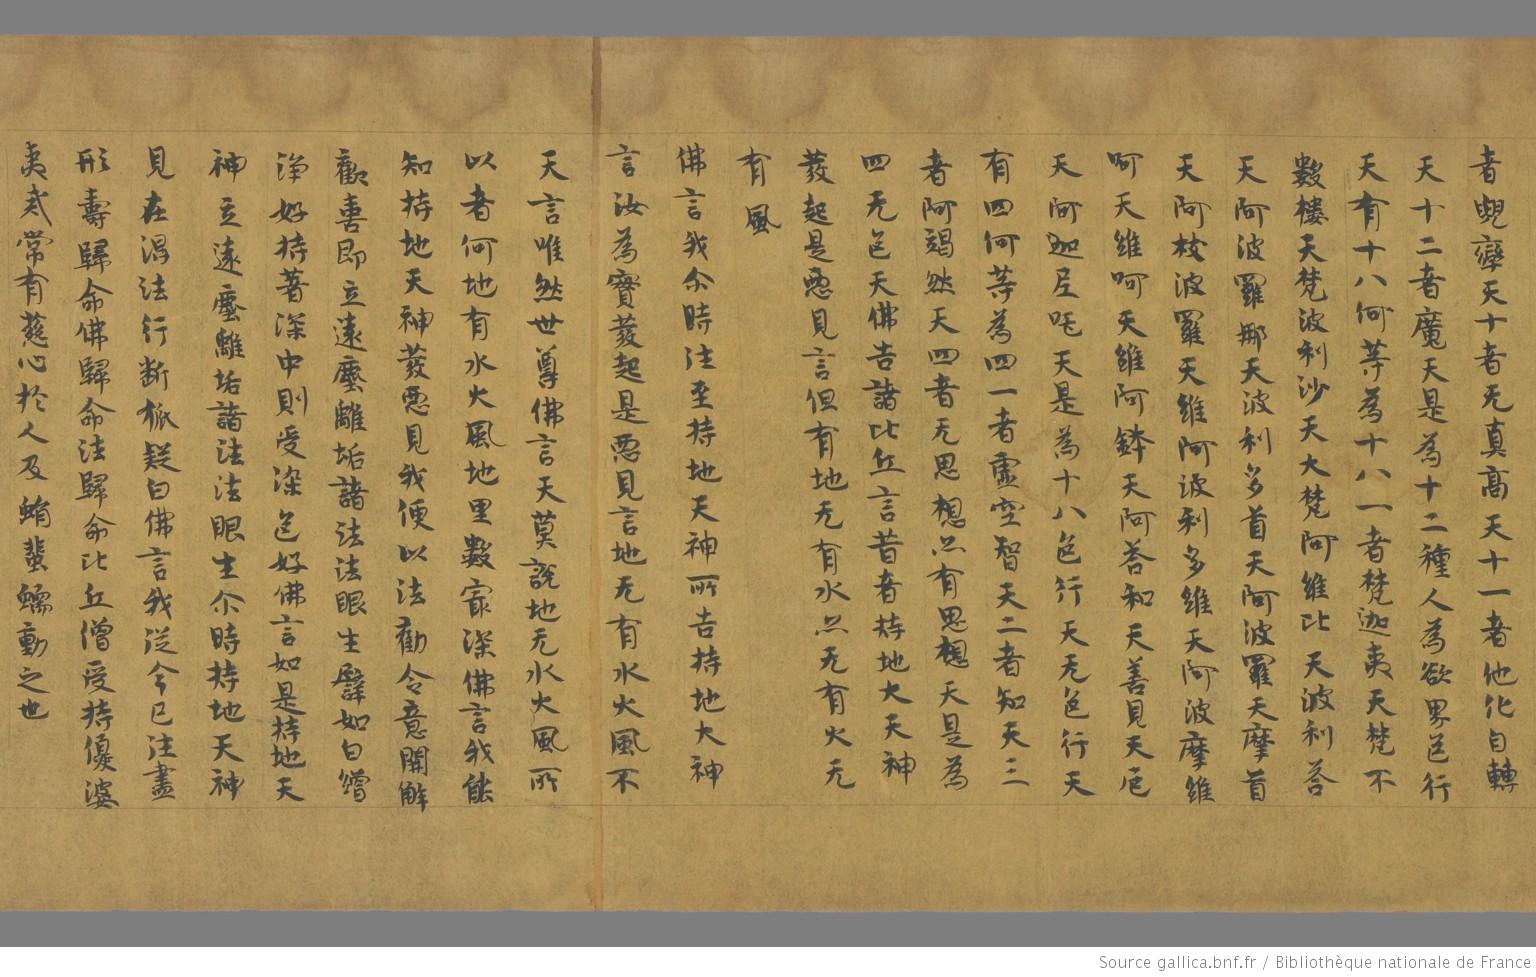 者兜率天十者无真高天十一者他化自轉
天十二者魔天是為十二種人為欲界色行
天有十八何等為十八一者梵迦夷天梵不
數樓天梵波利沙天大梵阿維比天波利荅
天阿波羅那天波利多首天阿波羅天摩首
天阿枝波羅天維阿波利多維天阿波摩維
呵天維呵天維阿鉢天阿荅和天善見天尼
天阿迦尼吒天是為十八色行天无色行天
有四何等為四一者虛空智天二者知天三
者阿竭然天四者无思想亦有思想天是為
四无色天佛告諸比丘言昔者持地大天神
發起是惡見言但有地无有水亦无有火无
有風
佛言我尒時往至持地天神所告持地大神
言汝為實發起是惡見言地无有水火風不
天言唯然世尊佛言天莫說地无水火風所
以者何地有水火風地里數寂深佛言我能
知持地天神發惡見我便以法勸令意開解
歡喜即立遠塵離垢諸法法眼生譬如白繒
淨好持著深中則受染色好佛言如是持地天
神立遠塵離垢諸法法眼生尒時持地天神
見在得法行斷狐疑白佛言我從今已往盡
形壽歸命佛歸命法歸命比丘僧受持優婆
夷戒常有慈心於人及蜎蜚蠕動之也
Source gallica.bnf.fr / Bibliothèque nationale de France